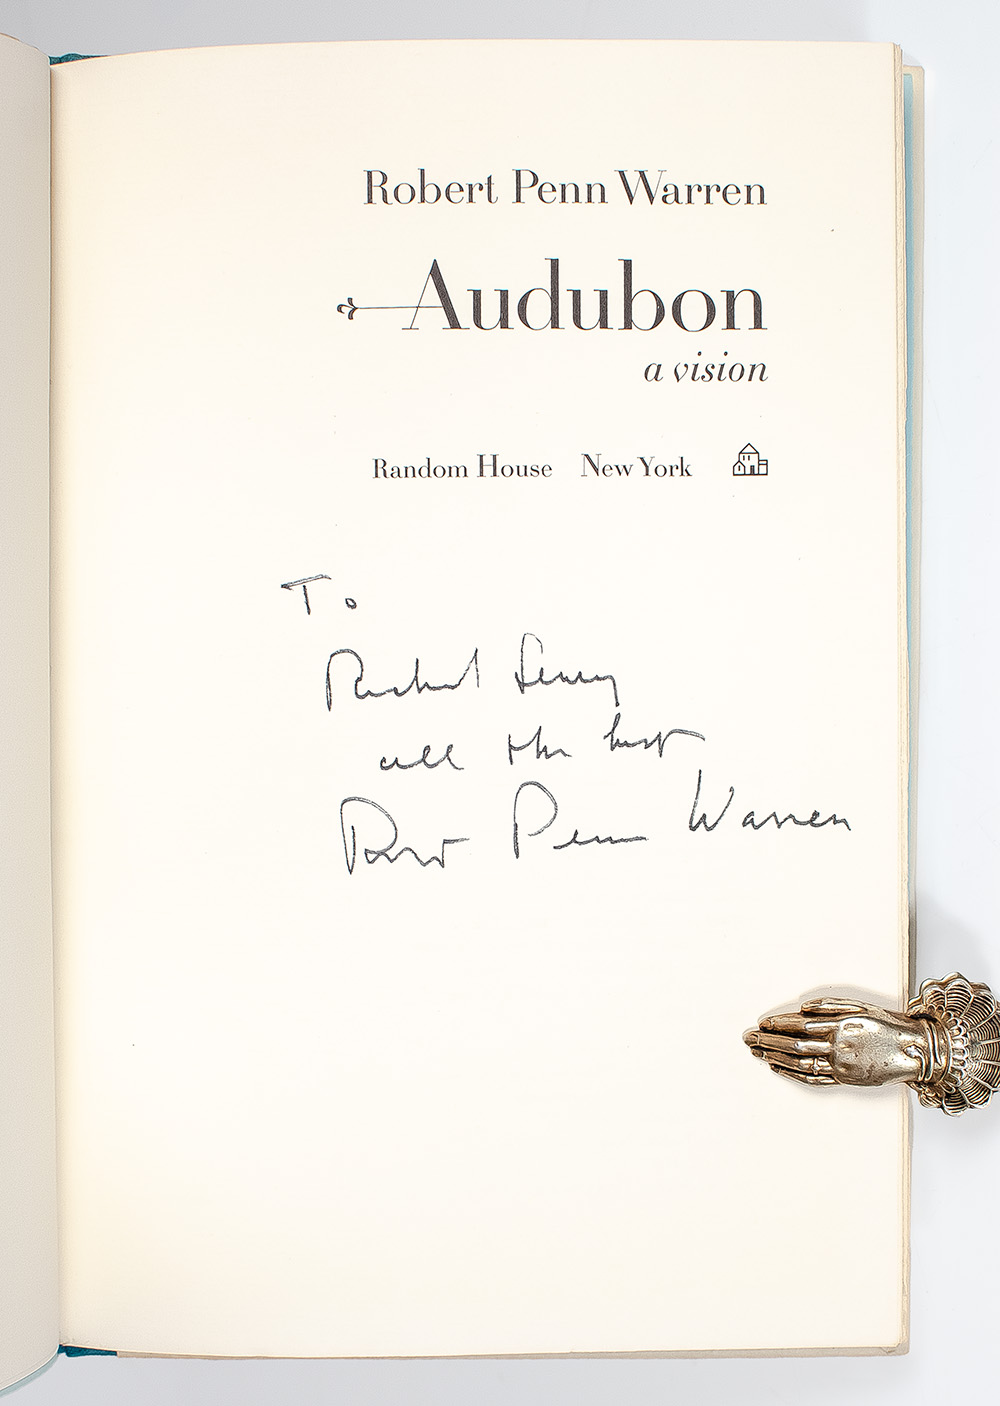 Robert Penn Warren
Audubon
a vision
Random House New York
To
Richard
all the best
Robt Penn Warren